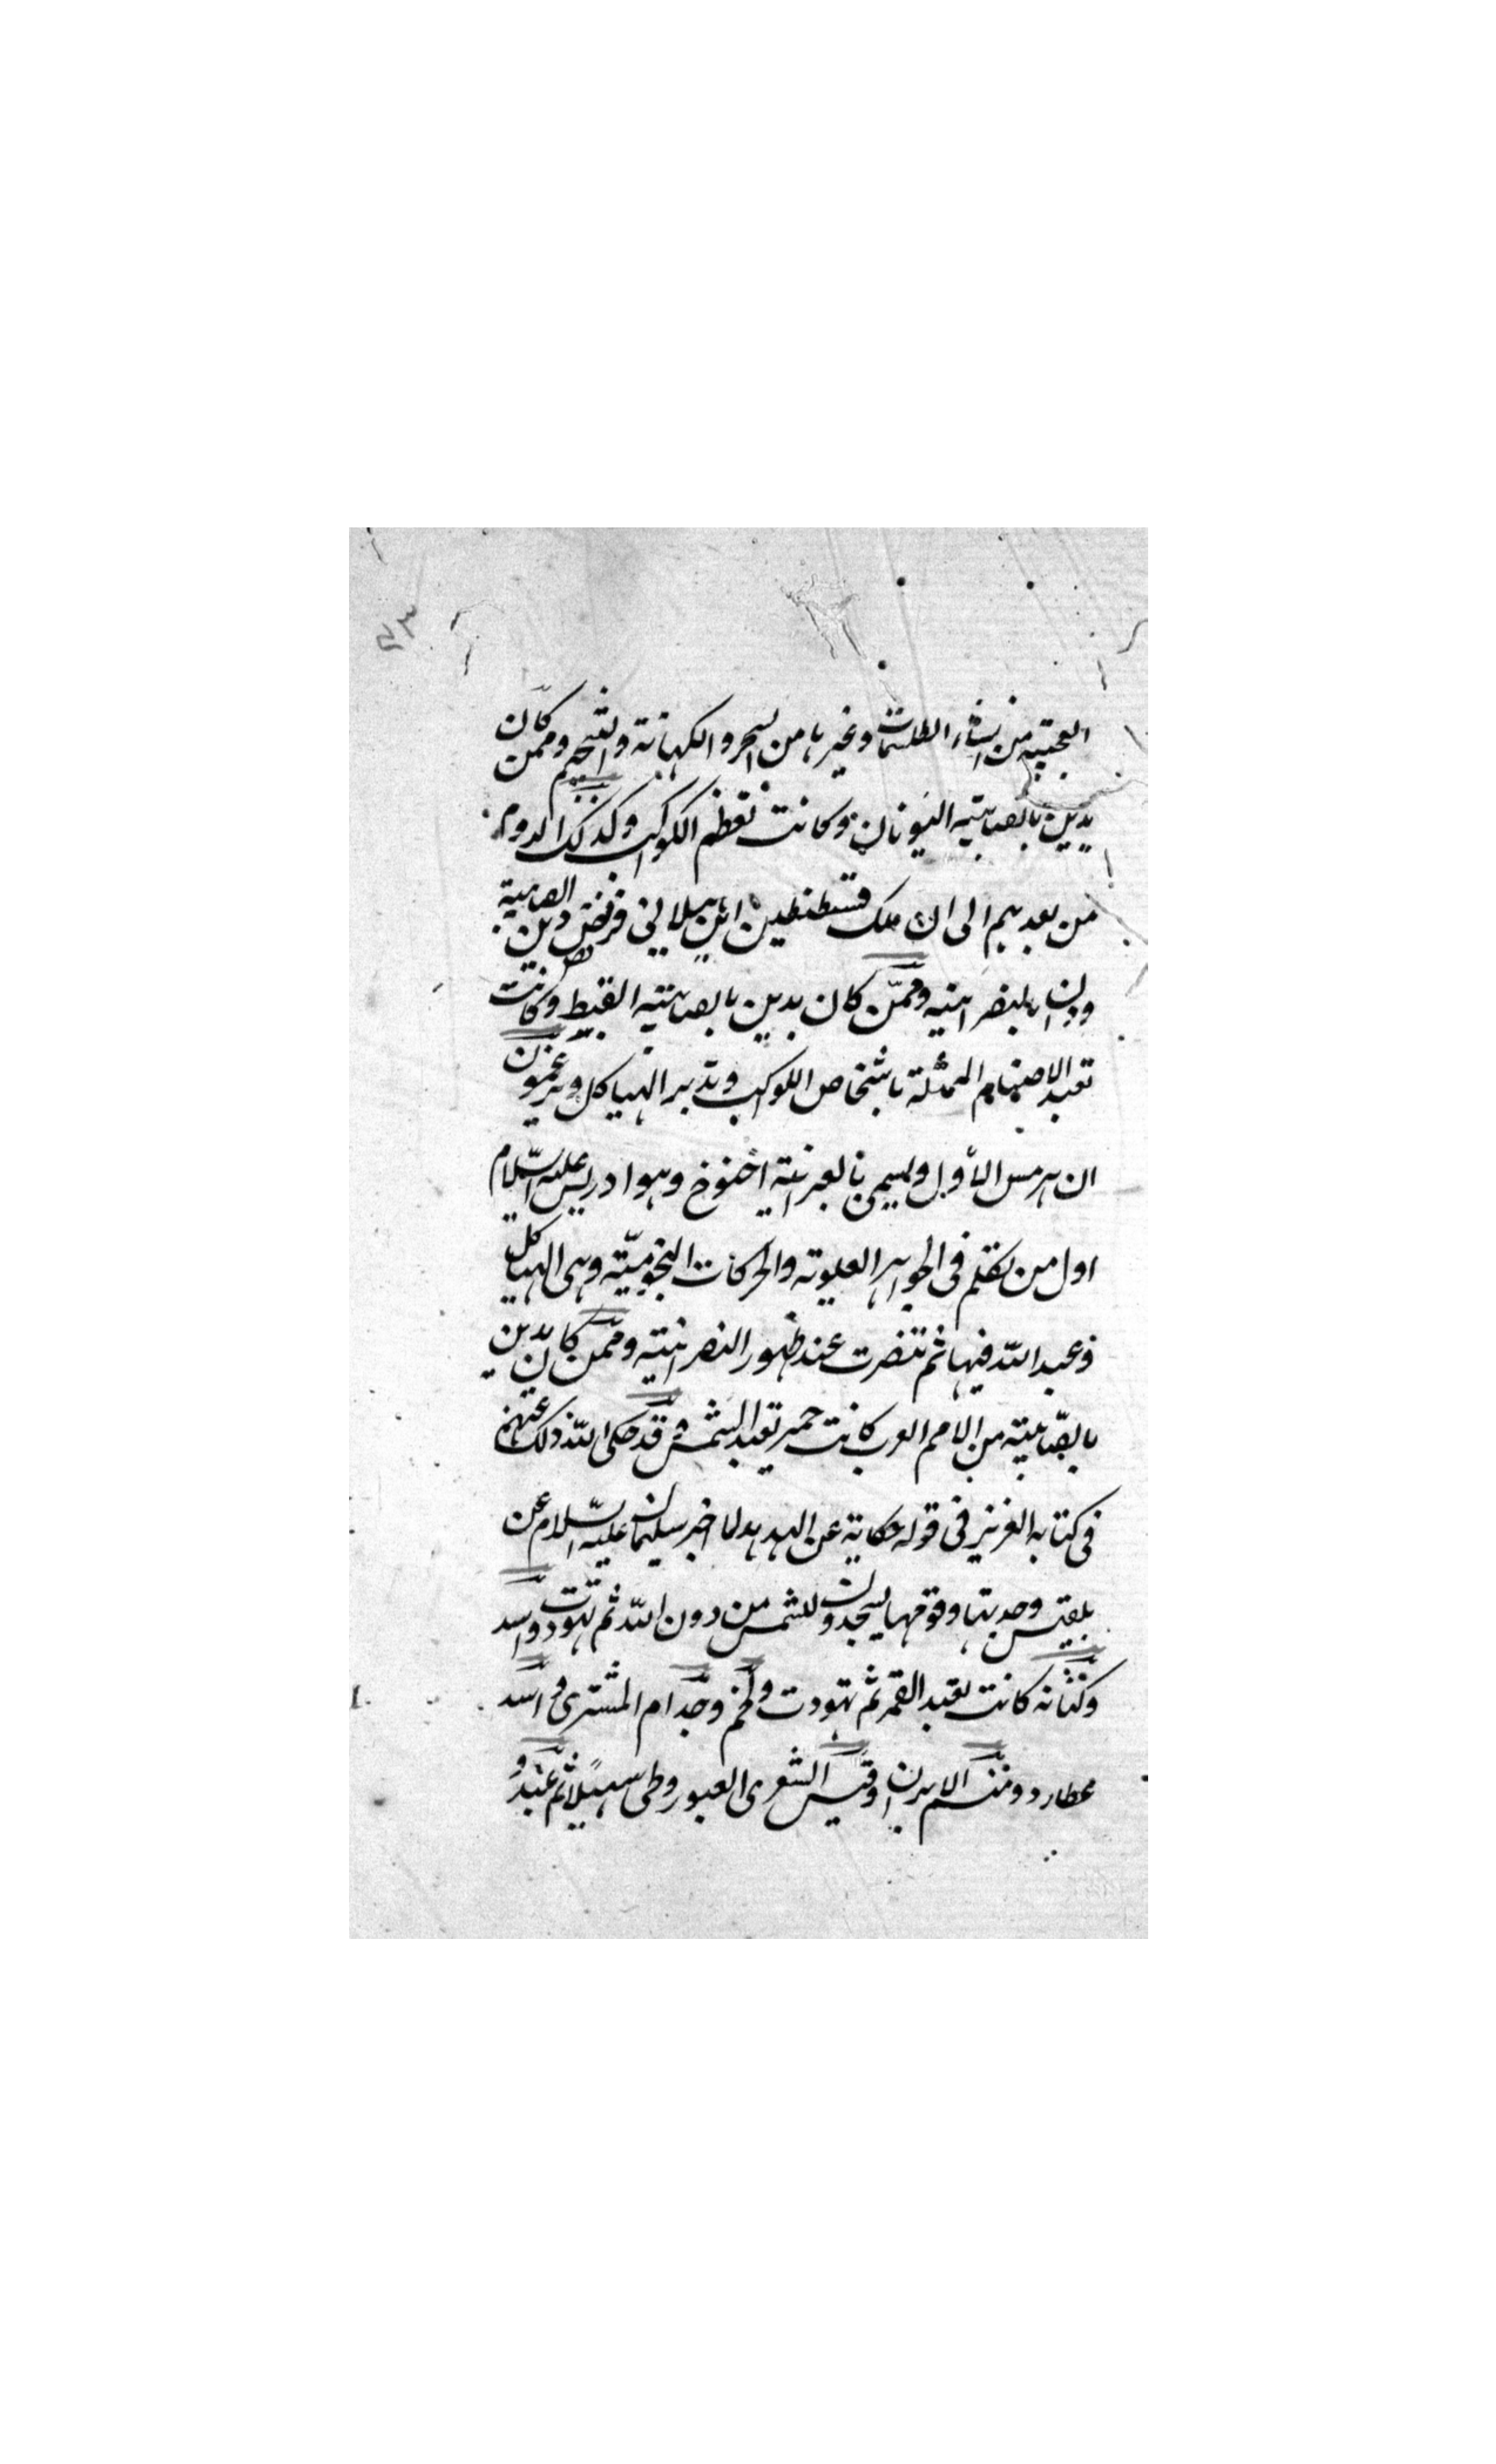 ٧٣
العجيبة من انشاء الطلسمات وغيرها من السحر والكهانة والتنجيم وممن كان
يدين بالصابئية اليونان وكانت تعظم الكواكب وكذلك الروم
من بعدهم الى ان ملك قسطنطين ابن هيلاني فرفض دين الصابئة
ودان بالنصرانية وممّن كان يدين بالصابئية القبط وكانت
تعبد الاصنام الممثلة باشخاص الكواكب وتدبر الهياكل ويزعمون
ان هرمس الأول ويسمى بالعبرانية اخنوخ وهو ادريس عليه السّلام
اول من تكلم فى الجواهر العلوية والحركات النجوميّة وبنى الهياكل
وعبد اللّه فيها ثم تنصرت عند ظهور النصرانية وممّن كان يدين
بالصّابئية من الامم العرب كانت حمير تعبد الشمس وقد حكى اللّه ذلك عنهم
فى كتابه العزيز فى قوله حكاية عن الهدهد لما اخبر سليمان عليه السّلام عن
بلقيس وجدتها وقومها يسجدون للشمس من دون اللّه ثم تهوّدت واسد
وكنانه كانت تعبد القمر ثم تهودت ولخم وجذام المشترى واسد
عطارد وتميم الدبران وقيس الشعرى العبور وطى سهيلا ثم عبدو